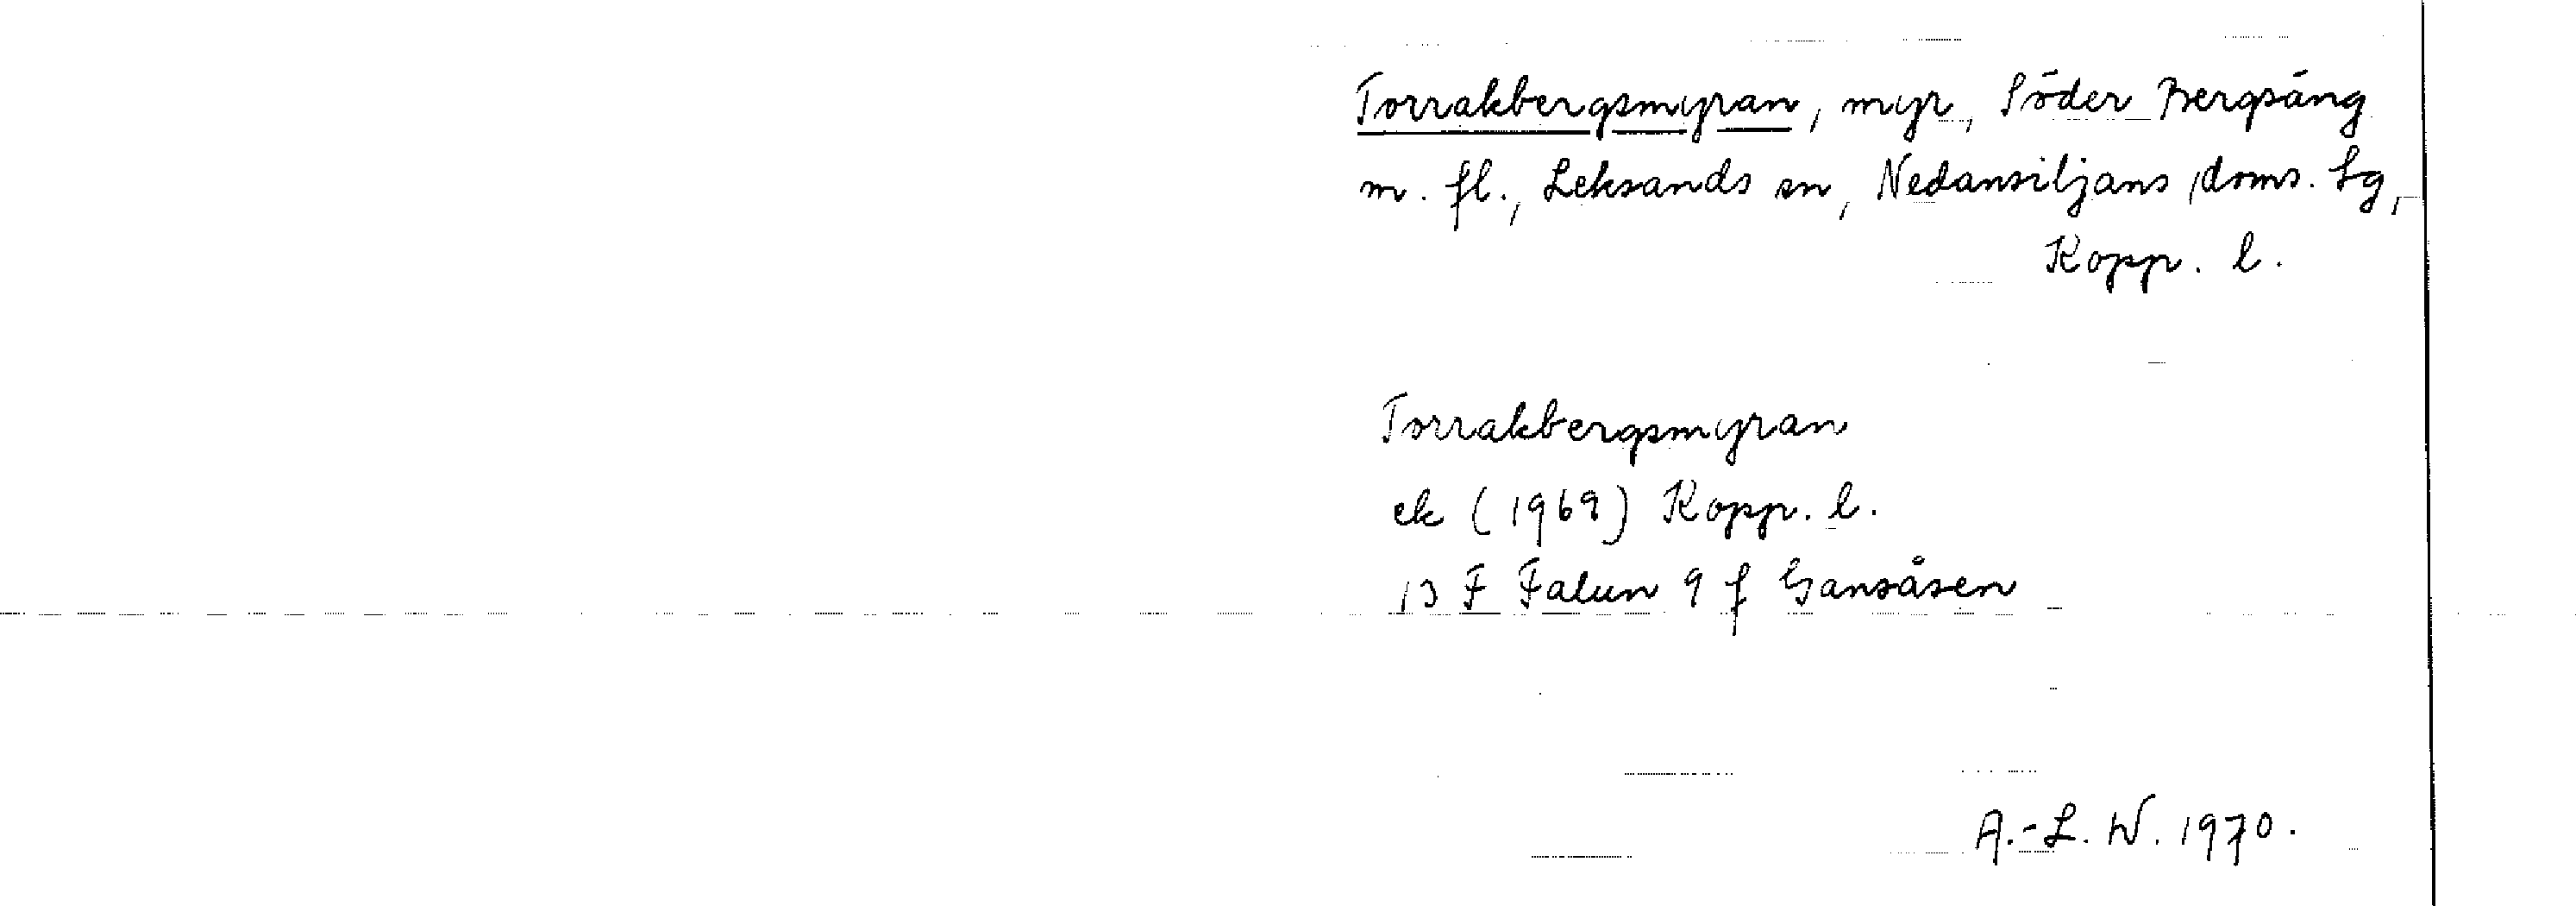 Torrakbergsmyran, myr, Söder Bergsäng
m. fl., Leksands sn, Nedansiljans doms. lg,
Kopp. l.
Torrakbergsmyran
ek (1969) Kopp. l.
13 F Falun 9 f Gansåsen
A.-L. W. 1970.